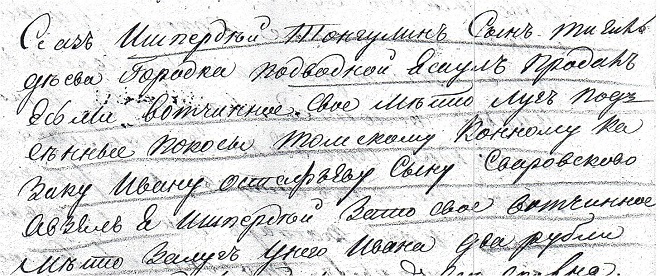 Се азъ Ишпердѣй Тонгулинъ Сынъ тигилъ
дѣева Городка подводной Ясаулъ Продалъ
Есми вотчинное Свое мѣсто лугъ подъ
сѣнные покосы томскому Конному Ка
заку Ивану остафьеву Сыну Сваровсково
Авзелъ Я Ишпердѣй Зато свое вотчинное
мѣсто Залугъ унего Ивана два рубли